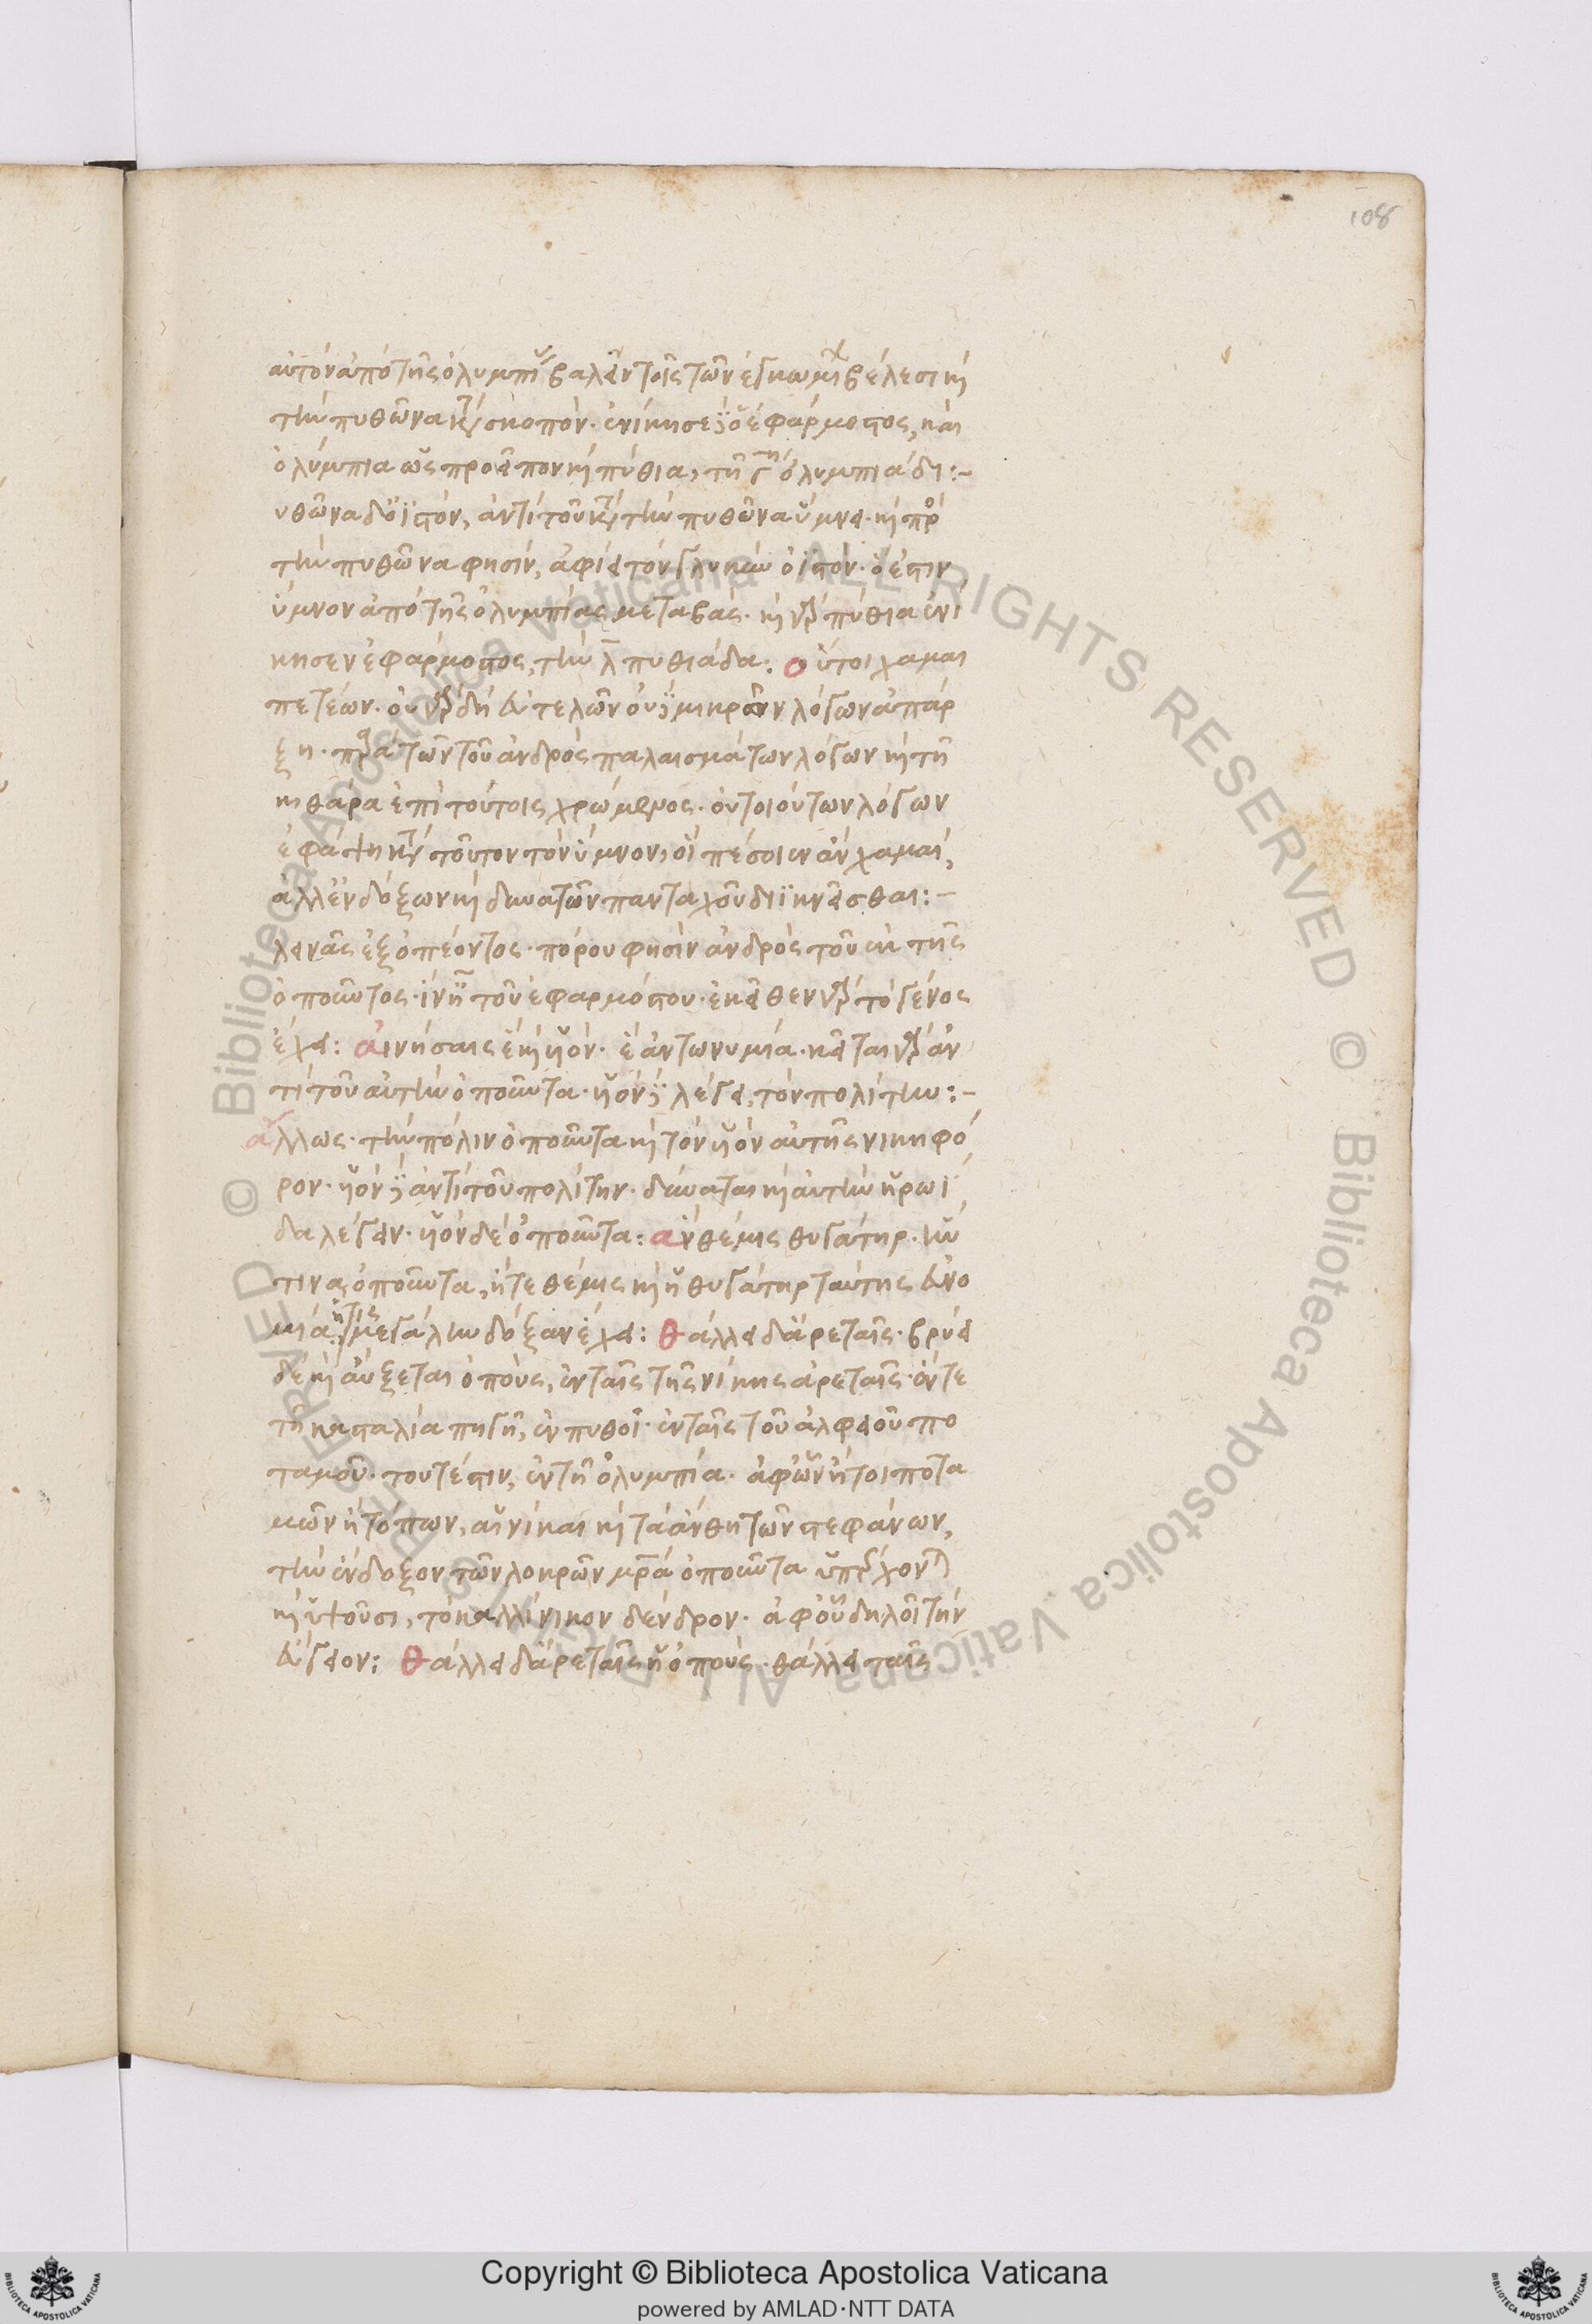 108
αὐτὸν ἀπὸ τῆς ὀλυμπί βαλεῖν τοῖς τῶν ἐγκωμί βέλεσι κỳ
τὴν πυθῶνα κτ̀ σκοπόν· ἐνίκησε δὲ ὁ ἐφάρμοστος, καὶ
ὀλύμπια ὡς προεῖπον κỳ πύθια, τῇ γ ὀλυμπιάδι:-
υθῶνα δ' ὀϊστόν, ἀντὶ τοῦ κτ̀ τὴν πυθῶνα ὕμνει· κỳ πρὸ
τὴν πυθῶνα φησίν, ἀφίει τὸν γλυκὺν ὀϊστόν· ὅ ἐστιν
ὕμνον ἀπὸ τῆς ὀλυμπίας μεταβάς· κỳ γὰρ πύθια ἐνί
κησεν ἐφάρμοστος, τὴν λ πυθιάδα: οὔτοι χαμαι
πετέων· οὐ γὰρ δὴ εὐτελῶν οὐδὲ μικρῶν λόγων ἀπάρ
ξῃ· πρα τῶν τοῦ ἀνδρὸς παλαισμάτων λόγων κỳ τῇ
κιθάρα ἐπὶ τούτοις χρώμενος· οὐ τοιούτων λόγων
ἐφάψῃ κτ̀ τοῦτον τὸν ὕμνον, οἳ πέσοιεν ἂν χαμαί,
ἀλλ' ἐνδόξων κỳ δυνατῶν πανταχοῦ διϊκνεῖσθαι:-
λεινᾶς ἐξ ὀπέοντος· πόρου φησὶν ἀνδρὸς τοῦ ἐκ τῆς
ὀποῦντος· τοῦ ἐφαρμόστου· ἐκεῖθεν γὰρ τὸ γένος
ἔχει: αἰνήσαις ἓ κỳ υἱόν· ἓ ἀντωνυμία· κεῖται γὰρ ἀν
τὶ τοῦ αὐτὴν ὀποῦντα· υἱὸν δὲ λέγει, τὸν πολίτην:-
ἄλλως· τὴν πόλιν ὀποῦντα κỳ τὸν υἱὸν αὐτῆς νικηφό
ρον· υἱὸν δὲ ἀντὶ τοῦ πολίτην· δύναται κỳ αὐτὴν ἡρωί
δα λέγειν· υἱὸν δὲ ὀποῦντα: ἃν θέμις θυγάτηρ· ἣν
τινα ὀποῦντα, ἥ τε θέμις κỳ ἡ θυγάτηρ ταύτης εὐνο
μία ἥτις μεγάλην δόξαν ἔχει: θάλλει δ' ἀρεταῖς· βρύει
δὲ κỳ αὔξεται ὁ ποῦς, ἐν ταῖς τῆς νίκης ἀρεταῖς· ἔν τε
τῇ κασταλία πηγῇ, ἐν πυθοῖ· ἐν ταῖς τοῦ ἀλφειοῦ πο
ταμοῦ· τουτέστιν, ἐν τῇ ὀλυμπία· ἀφ' ὧν ἤτοι ποτα
μῶν ἢ τόπων, αἱ νίκαι κỳ τὰ ἄνθη τῶν στεφάνων,
τὴν ἔνδοξον τῶν λοκρῶν μρ̄α ὀποῦντα ὑπάρχον
κỳ ὑψοῦσι, τὸ καλλίνικον δένδρον· ἀφ' οὗ δηλοῖ τὴν
εὔγειον: θάλλει δ' ἀρεταῖς ἡ ὁποῦς· θάλλει ταῖς
Copyright © Biblioteca Apostolica Vaticana
powered by AMLAD·NTT DATA